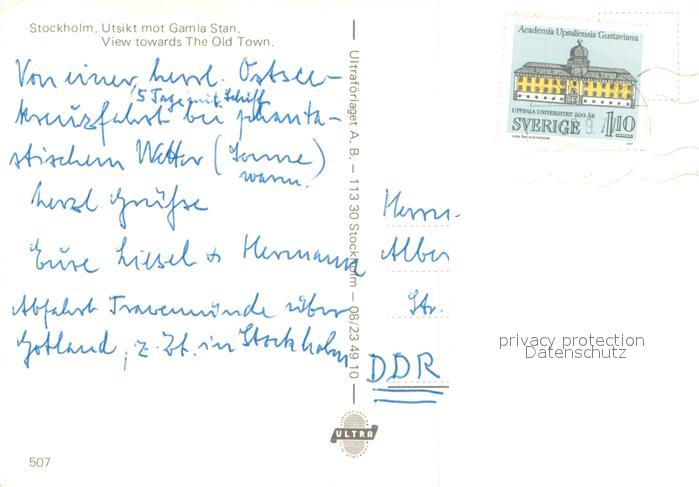 Stockholm, Utsikt mot Gamla Stan.
View towards The Old Town.
Von einer herrl. Ostsee-
5 Tage mit Schiff
kreuzfahrt bei phanta-
stischem Wetter (Sonne)
warm.
herzl. Grüße
Eure Liesel + Hermann
Abfahrt Travemünde über
Gotland, z. Zt. in Stockholm
507
Ultraförlaget A.B. – 113 30 Stockholm – 08/23 49 10
ULTRA
Academia Upsaliensis Gustaviana
UPPSALA UNIVERSITET 500 ÅR
SVERIGE 1.10
Herrn
Alber
Str.
DDR
privacy protection
Datenschutz